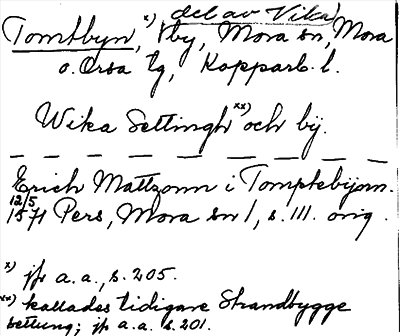 del av Vika
Tomtbyn, x) by, Mora sn, Mora
o. Orsa tg, Kopparb. l.
Wika Settingh xx) och bÿ.
Erich Mattzonn i Tomptebÿnn.
12/5
1571 Pers, Mora sn 1, s. 111. orig.
x) jfr a.a., s. 205.
xx) kallades tidigare Strandbygge
settung; jfr a.a. s. 201.